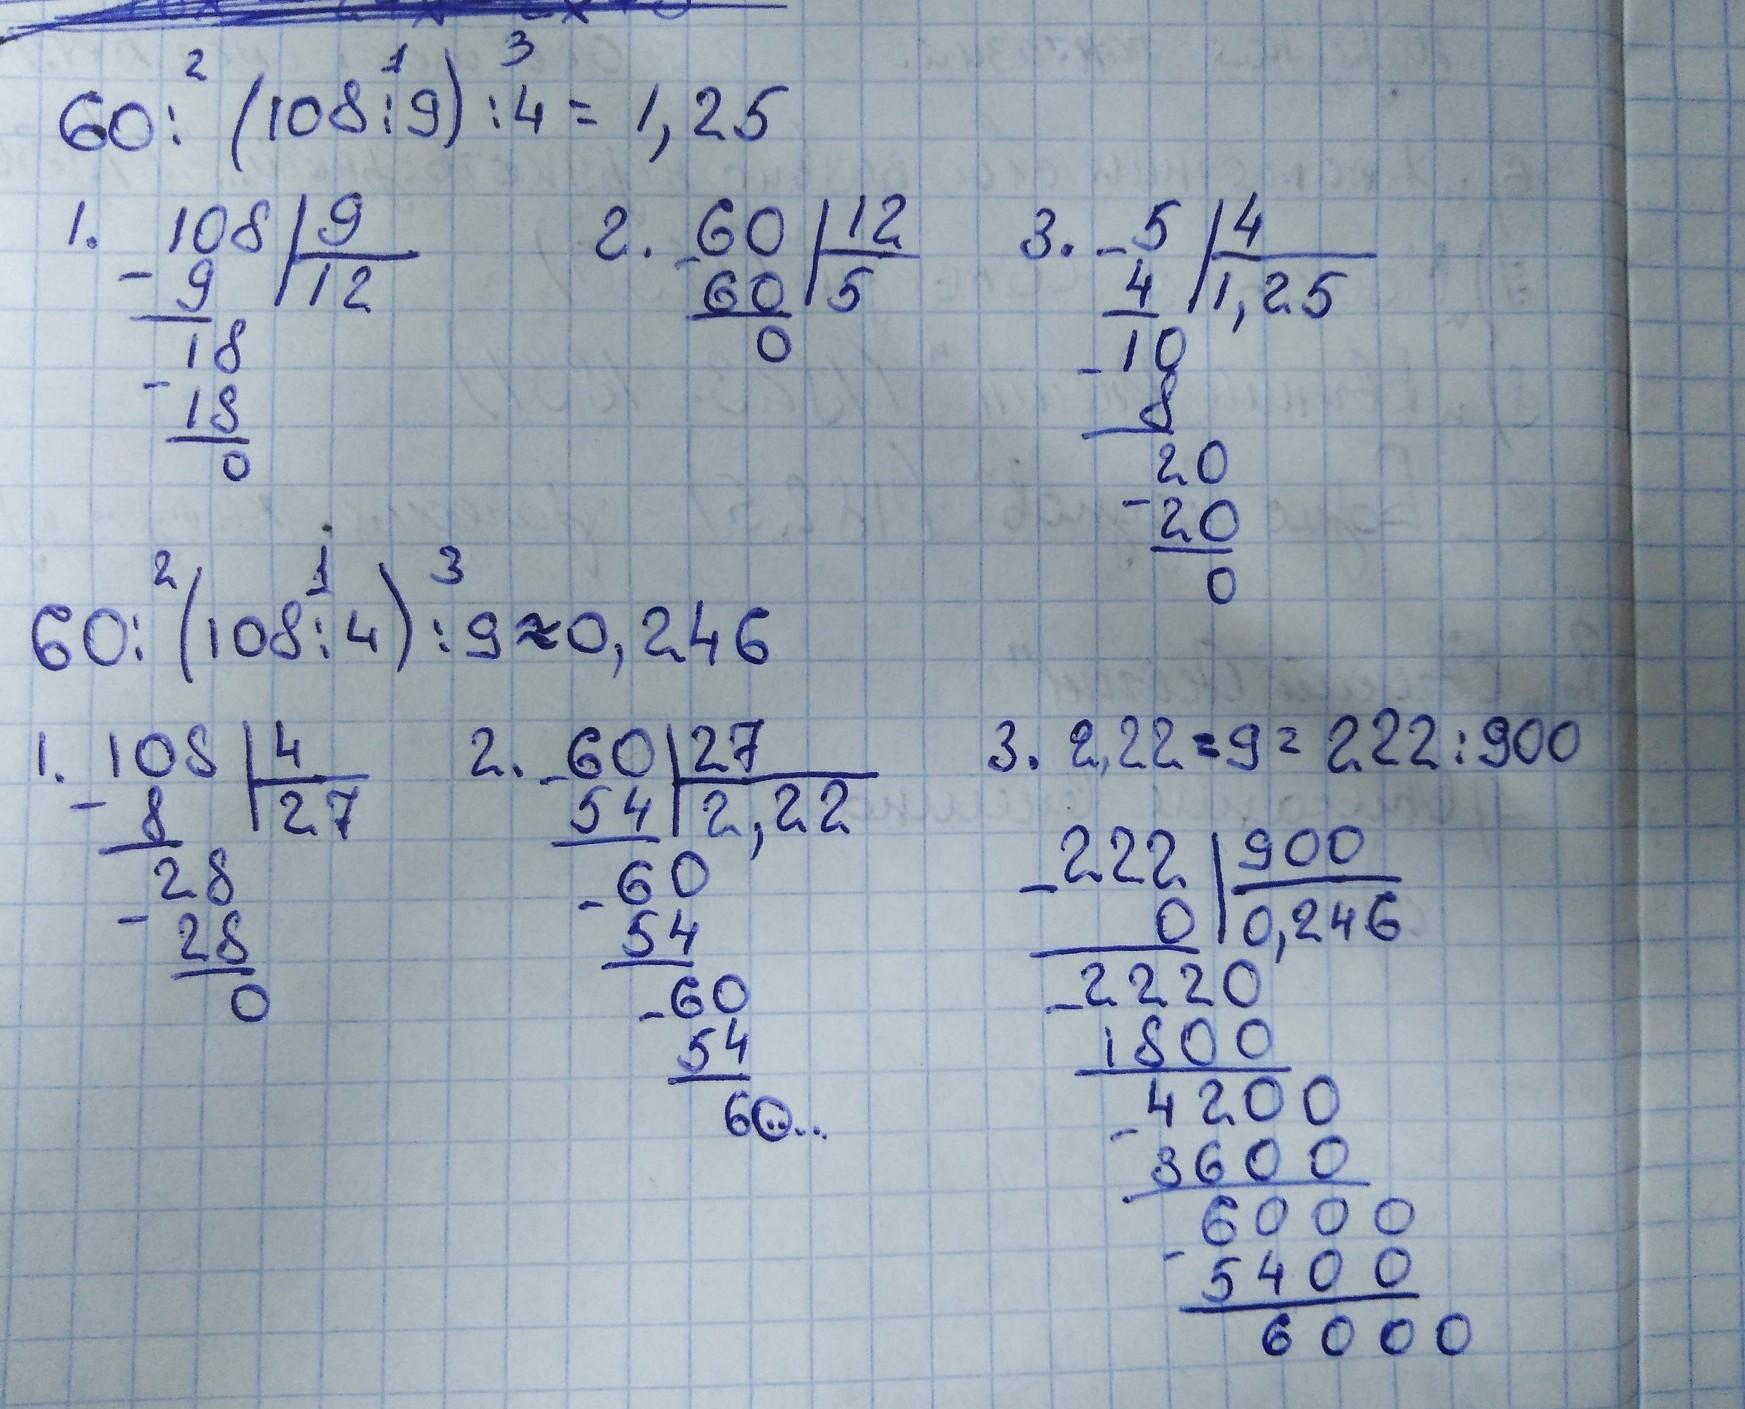 2 1 3
60: (108:9) :4 = 1,25
1. 108 9
- 9 12
18
- 18
0
2. - 60 12
60 5
0
3. - 5 4
4 1,25
- 10
8
20
- 20
0
2 1 3
60: (108:4) :9≈0,246
1. 108 4
- 8 27
28
- 28
0
2. - 60 27
54 2,22
- 60
54
- 60
54
60...
3. 2,22 : 9 = 222:900
- 222 900
0 0,246
- 2220
1800
- 4200
3600
- 6000
5400
6000